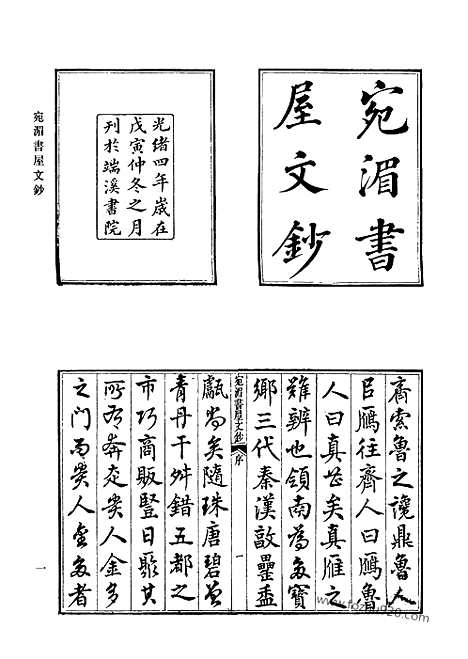 宛湄書
屋文鈔
光緒四年歲在
戊寅仲冬之月
刊於端溪書院
宛湄書屋文鈔
齊索魯之讒鼎魯人
㠯鴈往齊人曰鴈魯
人曰真甚矣真雁之
難辨也領南為多寶
鄉三代秦漢敦罍盉
宛湄書屋文鈔 序 一
甗尚矣隨珠唐碧曾
青丹干舛錯五都之
市巧商販豎日聚其
所為奔走貴人金多
之門而貴人金多者
一